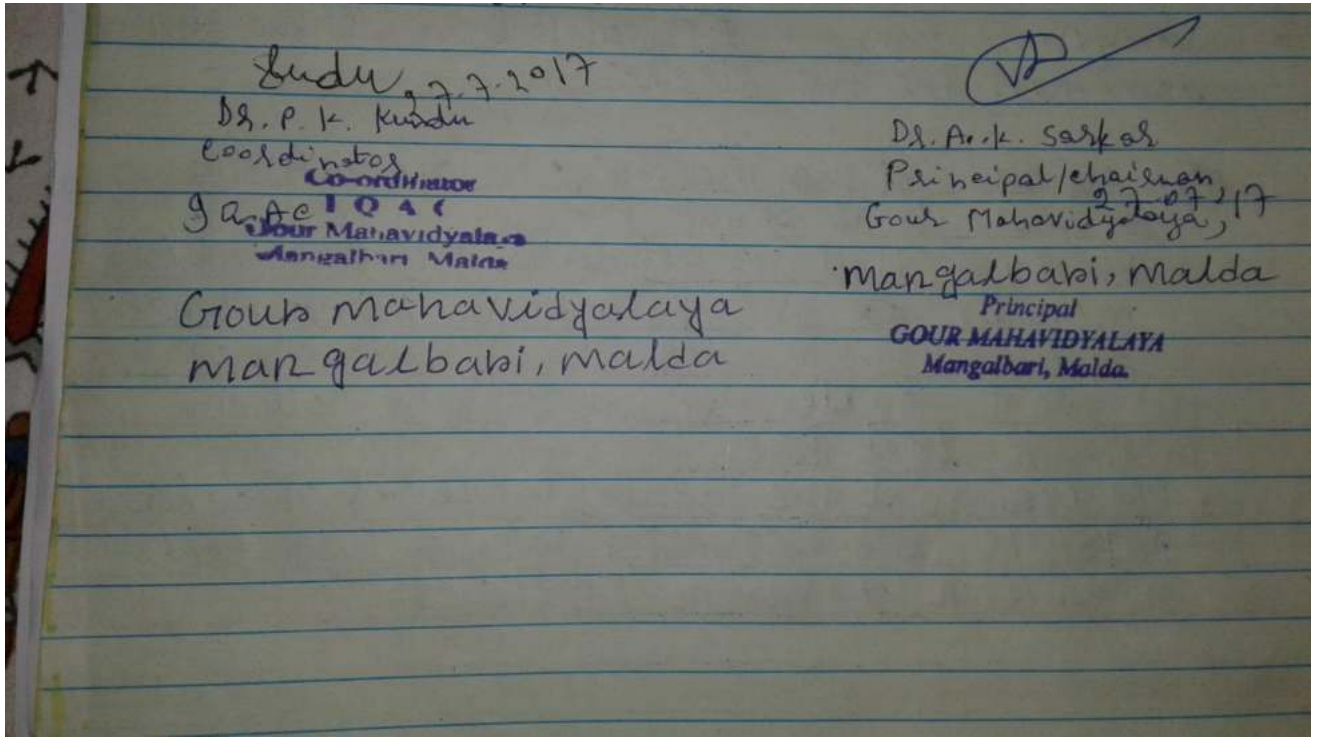 27.7.2017
Dr. P. K. Kundu
Coordinator
Co-ordinator
IQAC
I Q A C
Gour Mahavidyalaya
Mangalbari Malda
Gour Mahavidyalaya
Mangalbari, Malda
Dr. A. K. Sarkar
Principal/Chairman,
27.07.17
Gour Mahavidyalaya,
Mangalbari, Malda
Principal
GOUR MAHAVIDYALAYA
Mangalbari, Malda.